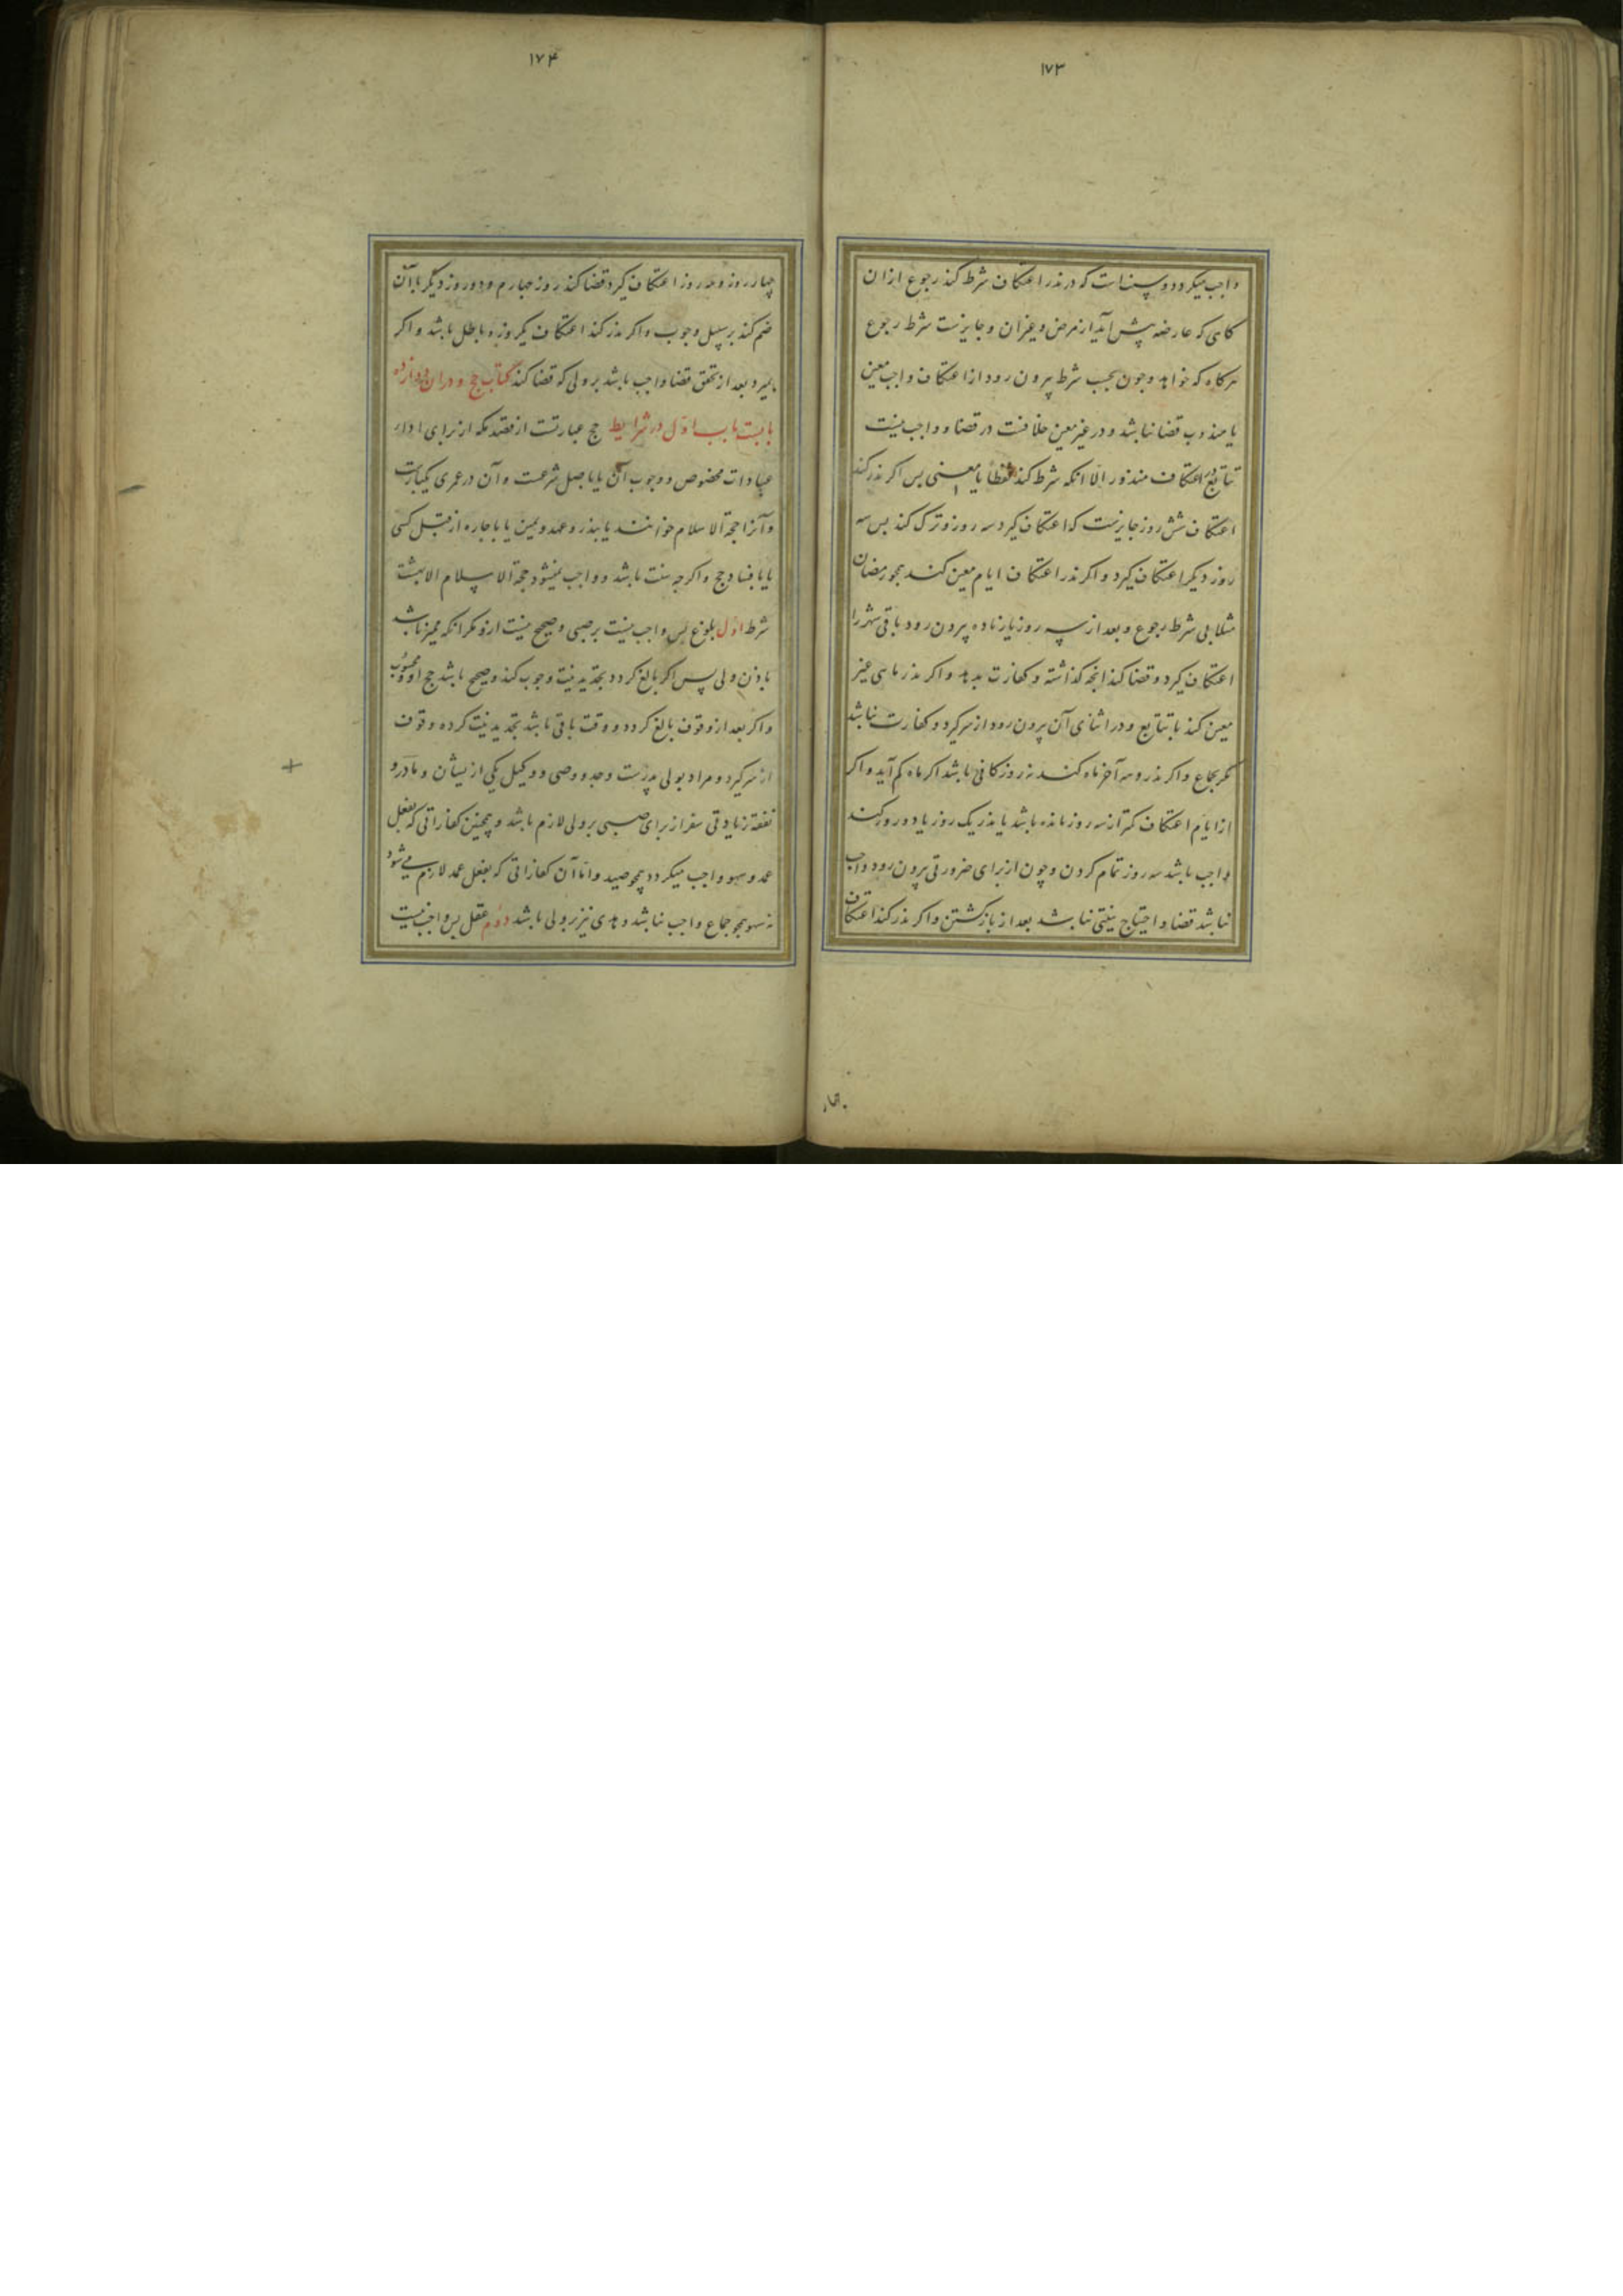 ۱۷۳
واجب میکردد و سنت است که در نذر اعتکاف شرط کند رجوع ازان
کاهی که عارضه پیش آید از مرض و غیران و جایزست شرط رجوع
هرکاه که خواهد و جون بحسب شرط بیرون رود از اعتکاف واجب معین
یا مندوب قضا نباشد و در غیر معین خلافست در قضا و واجب نیست
تتابع در اعتکاف منذور الا انکه شرط کند لفظا یا معنی بس اکر نذر کند
اعتکاف شش روز جایزست که اعتکاف کیرد سه روز و ترک کند بس سه
روز دیکر اعتکاف کیرد و اکر نذر اعتکاف ایام معین کند همجو رمضان
مثلا بی شرط رجوع و بعد از سه روز یا زیاده بیرون رود باقی شهر را
اعتکاف کیرد و قضا کند انجه کذاشته و کفارت بدهد و اکر نذر ماهی غیر
معین کند با تتابع و در اثنای آن بیرون رود از سر کیرد و کفارت نباشد
مکر بجماع و اکر نذر دهه آخر ماه کند نه روز کافی باشد اکر ماه کم آید و اکر
از ایام اعتکاف کمتر از سه روز مانده باشد یا نذر یک روز یا دو روز کند
واجب باشد سه روز تمام کردن و چون از برای ضرورتی بیرون رود واجب
نباشد قضا و احتیاج بنیتی نباشد بعد از بازکشتن و اکر نذر کند اعتکاف
۱۷۴
چهار روز و سه روز اعتکاف کیرد قضا کند روز چهارم و دو روز دیکر با آن
ضم کند بر سبیل وجوب و اکر نذر کند اعتکاف یکروزه باطل باشد و اکر
بمیرد بعد از تحقق قضا واجب باشد بر ولی که قضا کند کتاب حج و دران دوازده
بابست باب اول در شرایط حج عبارتست از قصد مکه از برای ادای
عبادات مخصوص و وجوب آن یا باصل شرعست و آن در عمری یکبارست
و آنرا حجة الاسلام خوانند یا بنذر و عهد و یمین یا باجاره از قبل کسی
یا بافساد حج و اکرجه سنت باشد و واجب نمیشود حجة الاسلام الا بهشت
شرط اول بلوغ بس واجب نیست بر صبی و صحیح نیست ازو مکر انکه ممیز باشد
باذن ولی پس اکر بالغ کردد تجدید نیت وجوب کند و صحیح باشد حج او و محسوب
و اکر بعد از وقوف بالغ کردد و وقت باقی باشد تجدید نیت کرده وقوف
از سر کیرد و مراد بولی پدرست و جد و وصی و وکیل یکی ازیشان و مادر و
نفقه زیادتی سفر از برای صبی بر ولی لازم باشد و همچنین کفاراتی که بفعل
عمد و سهو واجب میکردد همچو صید و اما آن کفاراتی که بفعل عمد لازم می شود
نه سهو همچو جماع واجب نباشد و هدی نیز بر ولی باشد دوم عقل بس واجب نیست